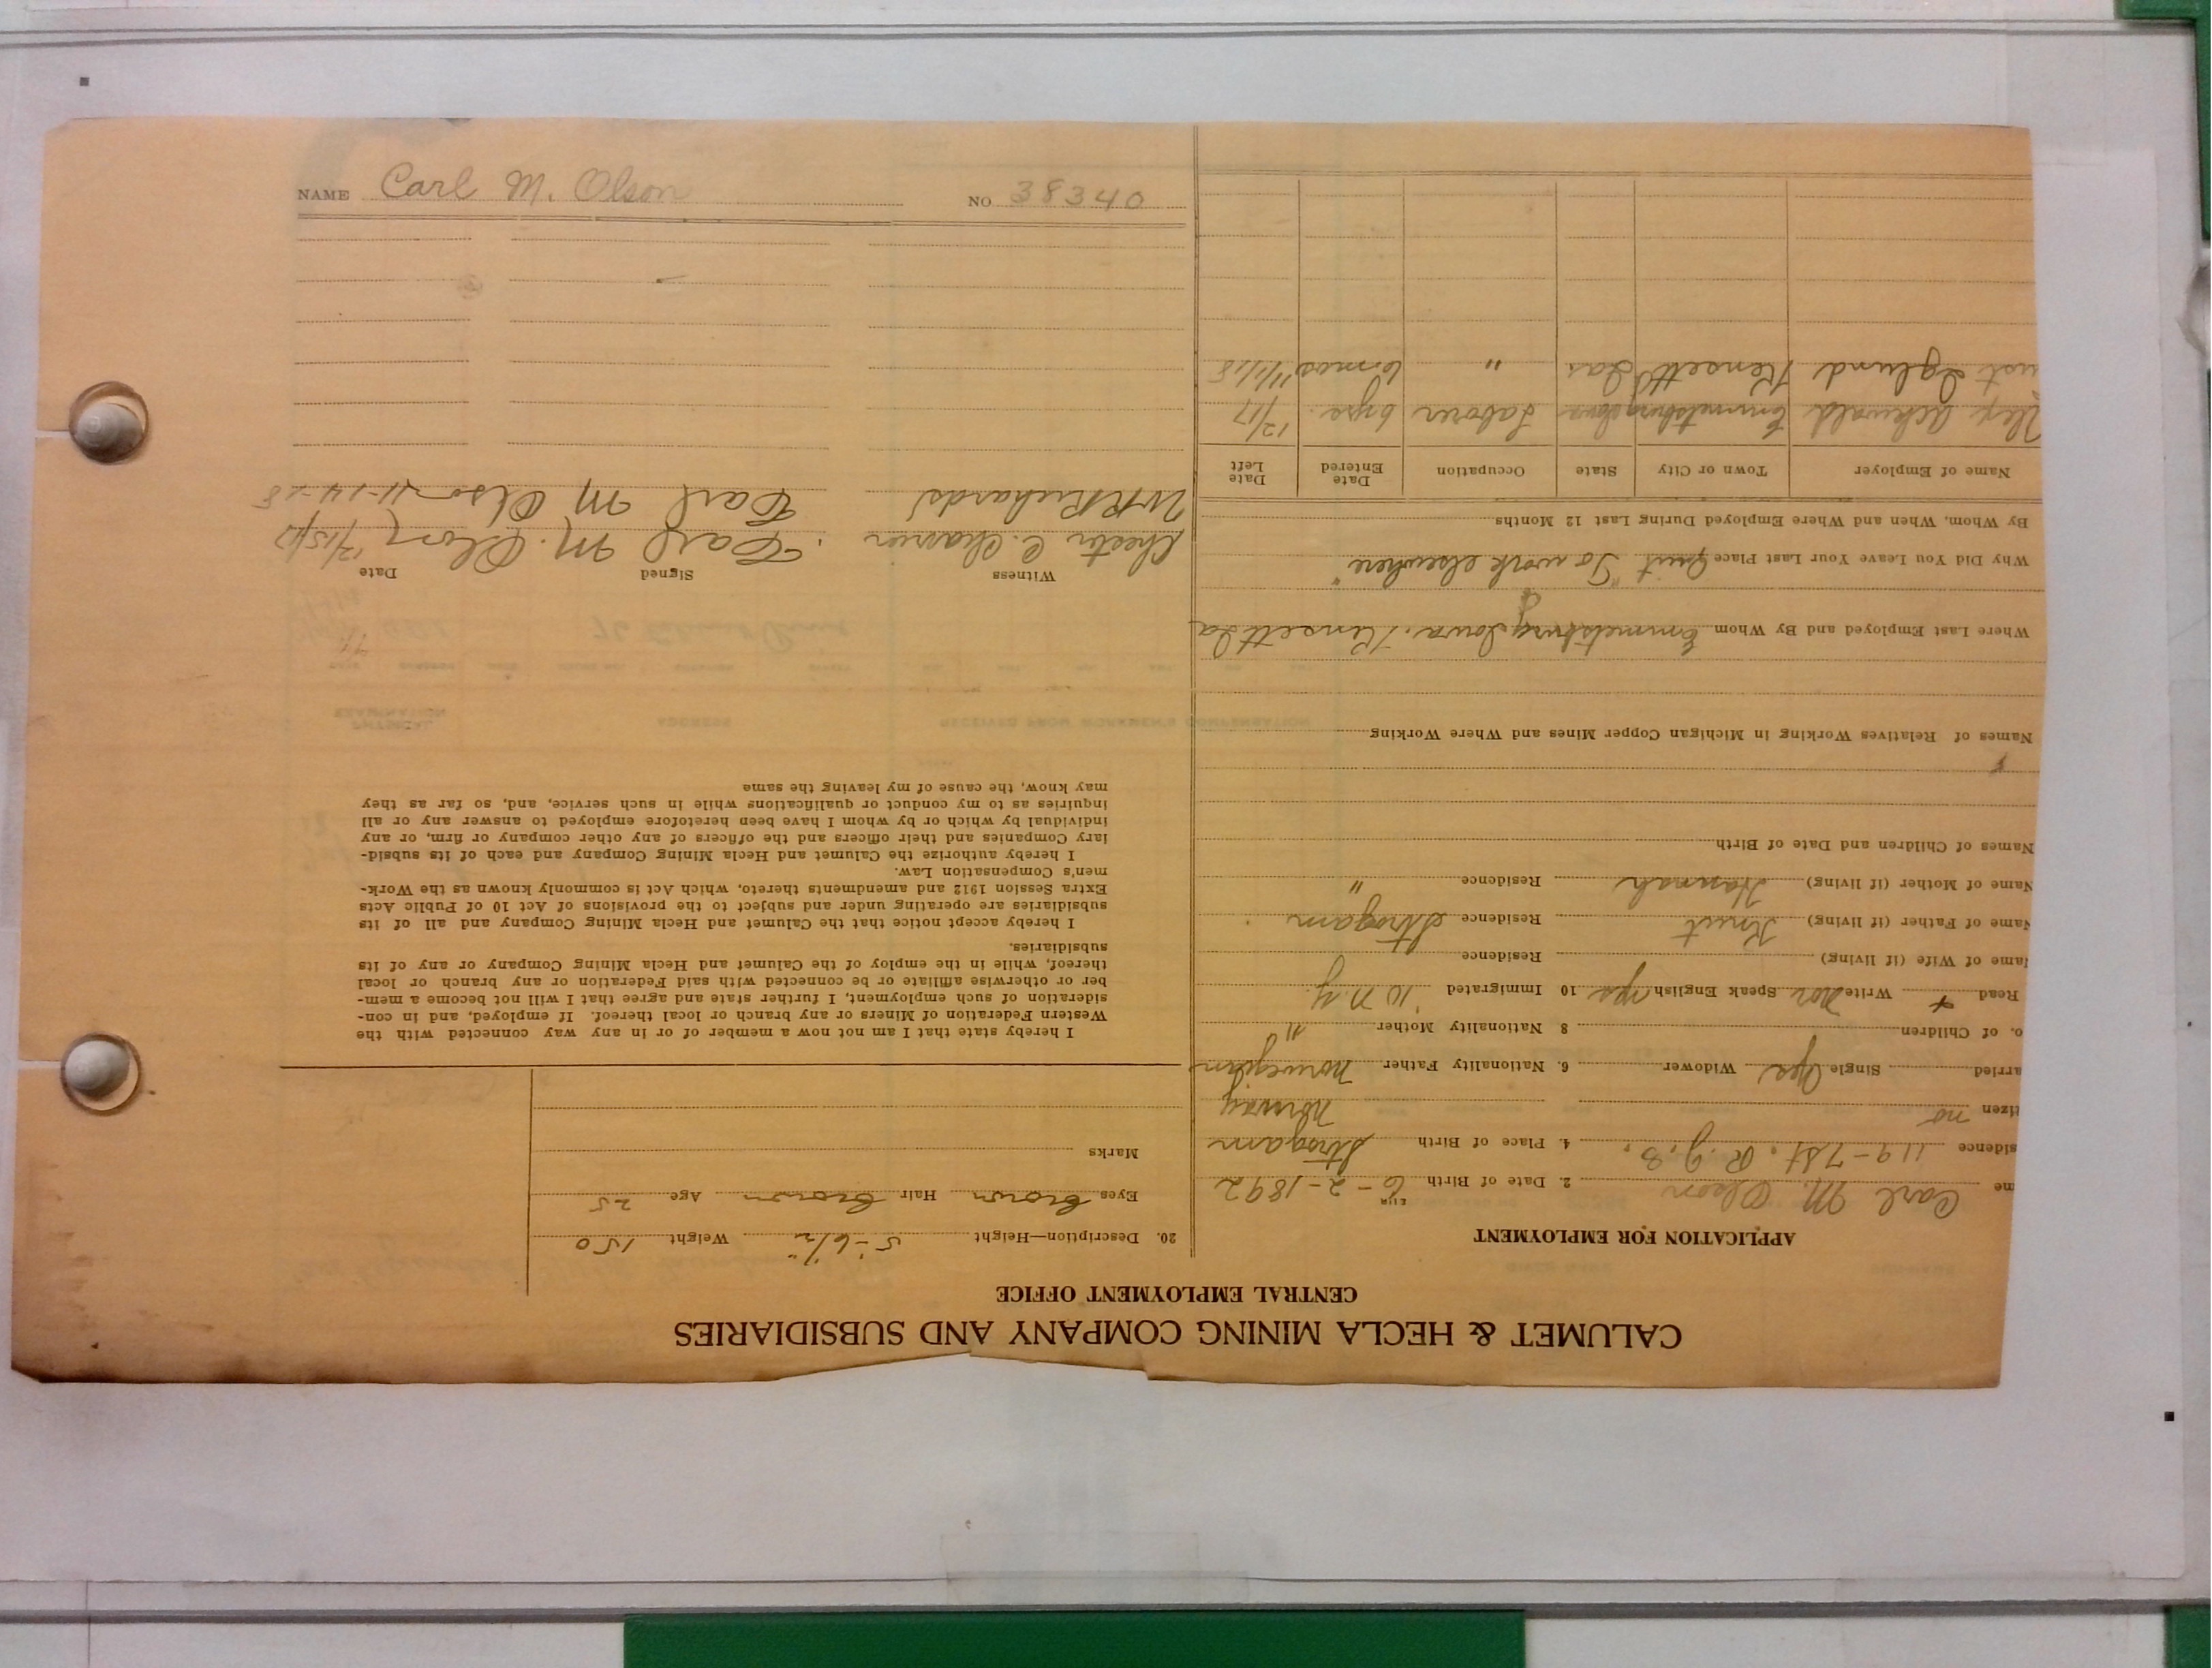 CALUMET & HECLA MINING COMPANY AND SUBSIDIARIES
CENTRAL EMPLOYMENT OFFICE
APPLICATION FOR EMPLOYMENT
me Carl M. Olson 2. Date of Birth 6-2-1892
sidence 119-7 St. R.J.B. 4. Place of Birth Strogam
tizen no Norway
arried Single Yes Widower 6. Nationality Father Norwegian
o. of Children 8 Nationality Mother "
Read Write Nor Speak English yes 10 Immigrated '10 N.Y.
ame of Wife (if living) Residence
Name of Father (if living) Knut Residence Strogam
Name of Mother (if living) Hannah Residence "
Names of Children and Date of Birth
Names of Relatives Working in Michigan Copper Mines and Where Working
Where Last Employed and By Whom Emmetsburg Iowa. Kensett Ia
Why Did You Leave Your Last Place Quit "To work elsewhere"
By Whom, When and Where Employed During Last 12 Months
Name of Employer Town or City State Occupation Date Entered Date Left
Alex Emmetsburg Iowa Laborer 6 yrs. 12/17
ust Kensett Ia " 6 mos 11/1/18
20. Description—Height 5-6½" Weight 150
Eyes brown Hair brown Age 25
Marks
I hereby state that I am not now a member of or in any way connected with the
Western Federation of Miners or any branch or local thereof. If employed, and in con-
sideration of such employment, I further state and agree that I will not become a mem-
ber or otherwise affiliate or be connected with said Federation or any branch or local
thereof, while in the employ of the Calumet and Hecla Mining Company or any of its
subsidiaries.
I hereby accept notice that the Calumet and Hecla Mining Company and all of its
subsidiaries are operating under and subject to the provisions of Act 10 of Public Acts
Extra Session 1912 and amendments thereto, which Act is commonly known as the Work-
men's Compensation Law.
I hereby authorize the Calumet and Hecla Mining Company and each of its subsid-
iary Companies and their officers and the officers of any other company or firm, or any
individual by which or by whom I have been heretofore employed to answer any or all
inquiries as to my conduct or qualifications while in such service, and, so far as they
may know, the cause of my leaving the same
Witness Signed Date
Chester C. Carl M. Olson 12/15/17
W R Richards Carl M Olson 11-14-18
NAME Carl M. Olson NO 38340